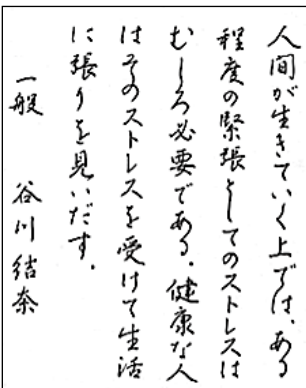 人間が生きていく上では、ある
程度の緊張としてのストレスは
むしろ必要である。健康な人
はそのストレスを受けて生活
に張りを見いだす。
一般　谷川結奈